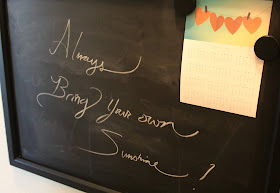 Always
Bring Your own
Sunshine !